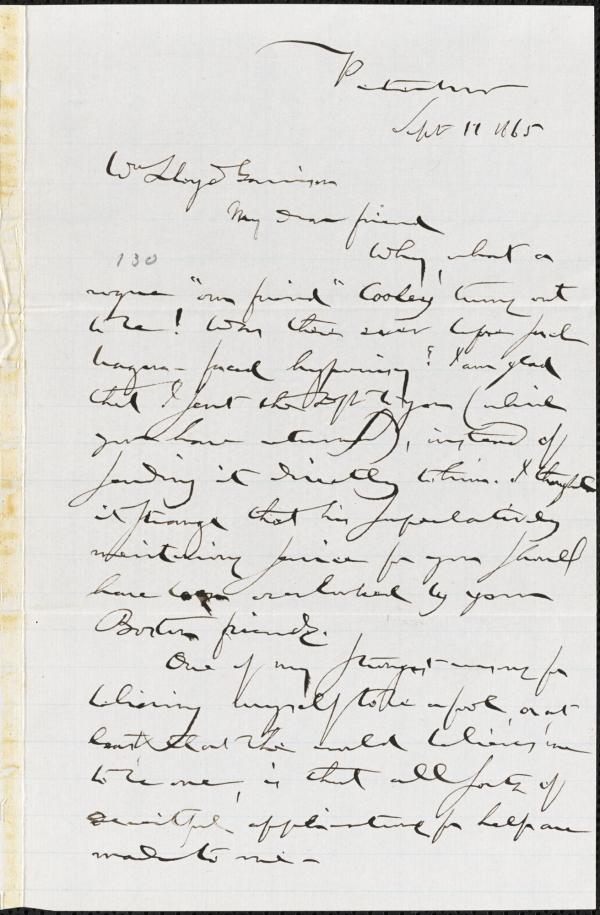 Peterboro
Sept 17 1865
Wm Lloyd Garrison
My dear friend
130
Why, what a
rogue "our friend" Cooley turns out
to be! Was there ever before such
brazen-faced hypocrisy? I am glad
that I sent the draft to you (which
you have returned), instead of
sending it directly to him. I thought
it strange that his superlatively
meritorious services for you should
have been overlooked by your
Boston friends.
One of my strongest reasons for
believing myself to be a fool, or at
least that the world believes me
to be one, is that all sorts of
deceitful applications for help are
made to me -